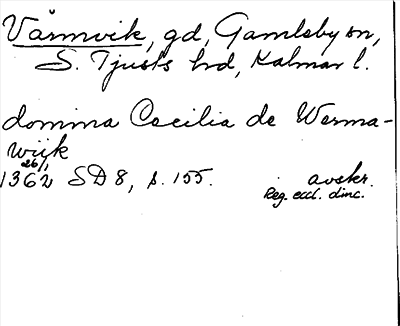 Värmvik, gd, Gamleby sn,
S. Tjusts hd, Kalmar l.
domina Cecilia de Werma-
wijk
26/1
1362 SD 8, s. 155. avskr.
Reg. eccl. dioc.